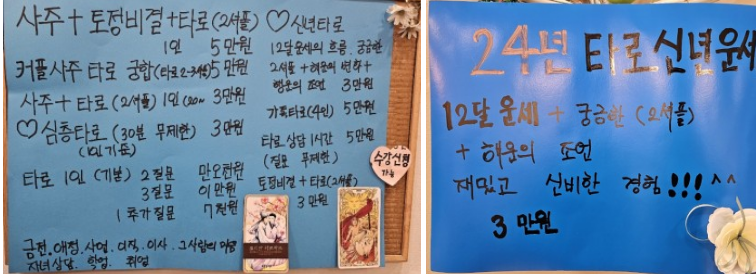 사주+토정비결+타로(2셔플)
1인 5만원
커플사주 타로 궁합(타로2~3셔플) 5만원
사주+타로(2셔플) 1인(20분) 3만원
♡심층타로(30분 무제한) 3만원
(1인기준)
타로 1인(기본) 2질문 만오천원
3질문 이만원
1추가질문 7천원
금전.애정.사업.이직.이사.그사람의 마음
자녀상담. 학업. 취업
♡신년타로
12달운세의 흐름, 궁금한
2셔플+해운의 변화+
행운의 조언 3만원
가족타로(4인) 5만원
타로 상담 1시간 5만원
(질문 무제한)
토정비결+타로(2셔플)
3만원
수강신청
가능
24년 타로신년운세
12달 운세 + 궁금한(2셔플)
+ 해운의 조언
재밌고 신비한 경험!!! ^^
3만원